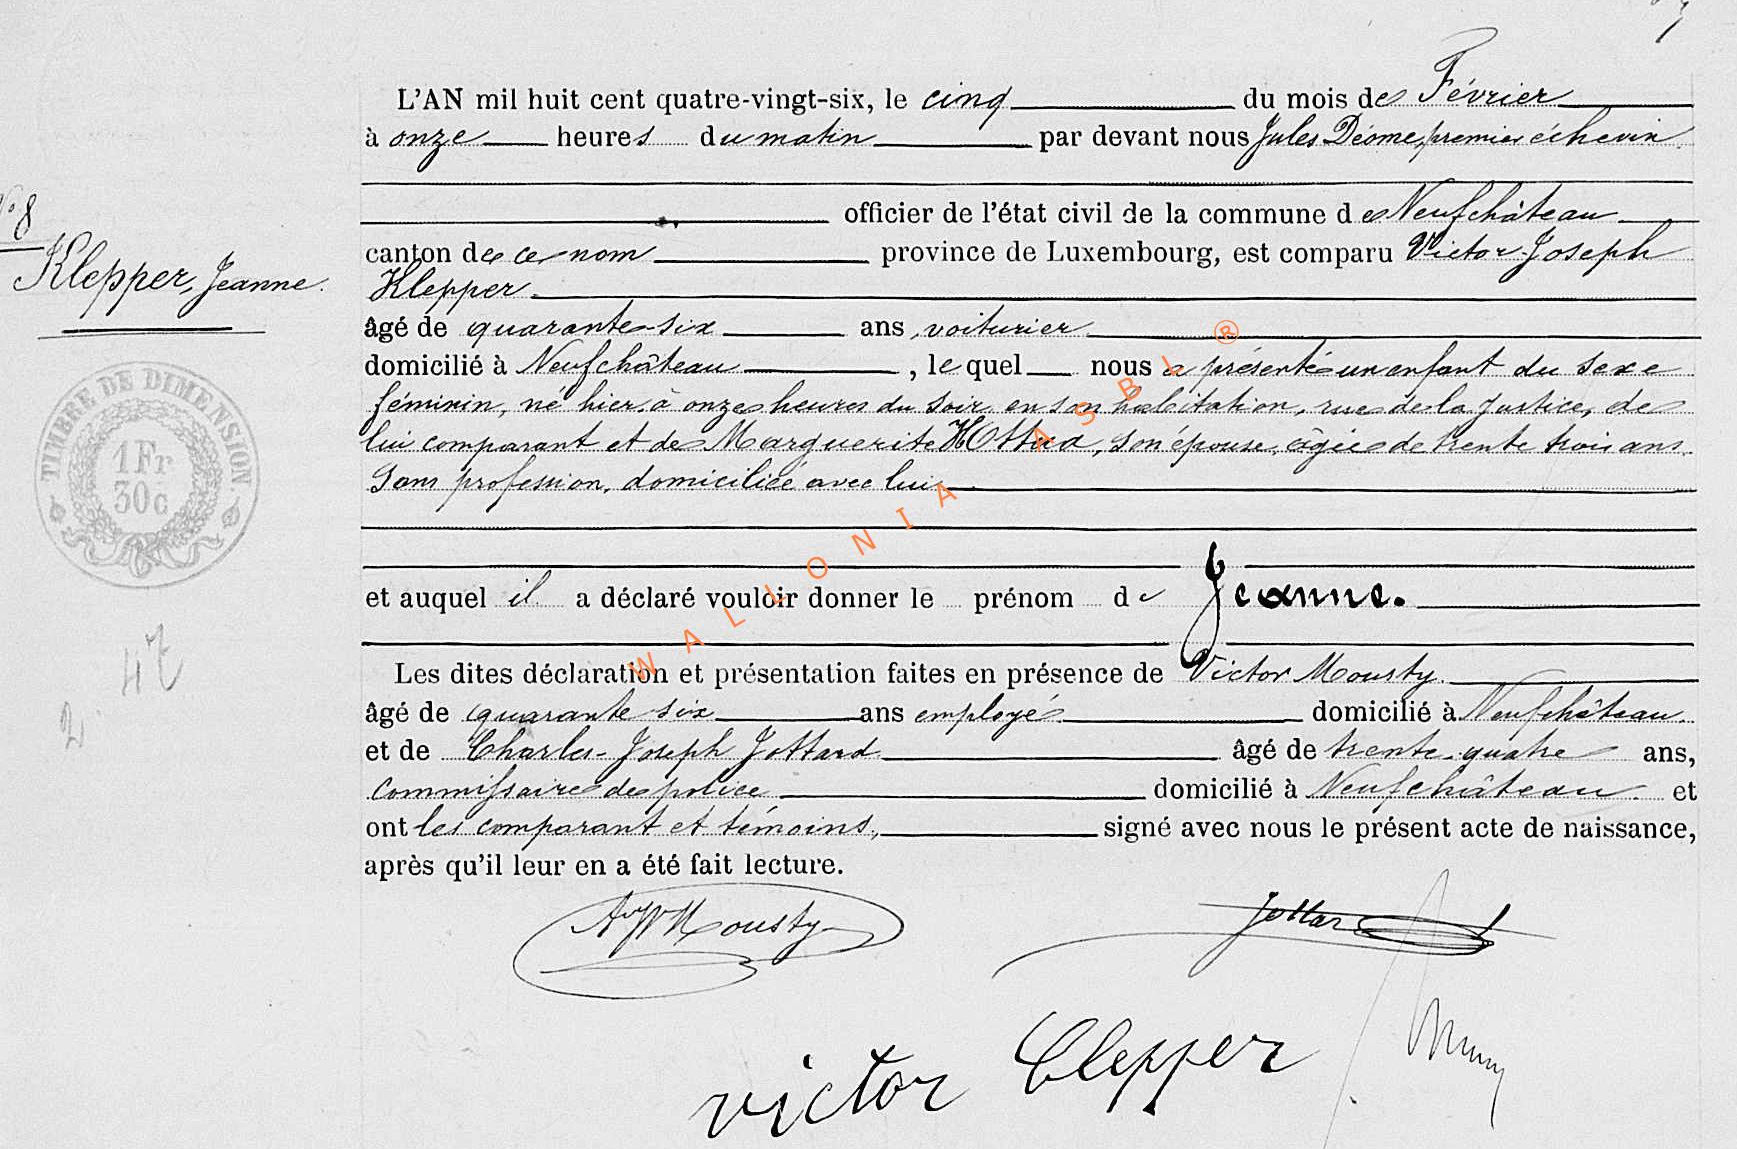 L'AN mil huit cent quatre-vingt-six, le cinq du mois de Février
à onze heures du matin par devant nous Jules Déome, premier échevin
officier de l'état civil de la commune de Neufchâteau
N° 8
canton de ce nom province de Luxembourg, est comparu Victor-Joseph
Klepper, Jeanne.
Klepper
âgé de quarante-six ans, voiturier
domicilié à Neufchâteau, lequel nous a présenté un enfant du sexe
féminin, né hier, à onze heures du soir, en son habitation, rue de la Justice, de
lui comparant et de Marguerite, son épouse, âgée de trente trois ans,
sans profession, domiciliée avec lui
TIMBRE DE DIMENSION
1 Fr
30c
et auquel il a déclaré vouloir donner le prénom de Jeanne.
47
Les dites déclaration et présentation faites en présence de Victor Mousty
âgé de quarante six ans employé domicilié à Neufchâteau
2
et de Charles-Joseph Jottard âgé de trente-quatre ans,
commissaire de police domicilié à Neufchâteau et
ont les comparant et témoins, signé avec nous le présent acte de naissance,
après qu'il leur en a été fait lecture.
Mousty
Jottard
victor Clepper
WALLONIA ASBL ®